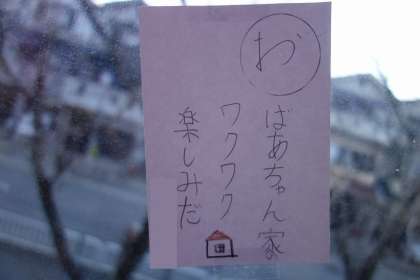 お
ばあちゃん家。
ワクワク
楽しみだ